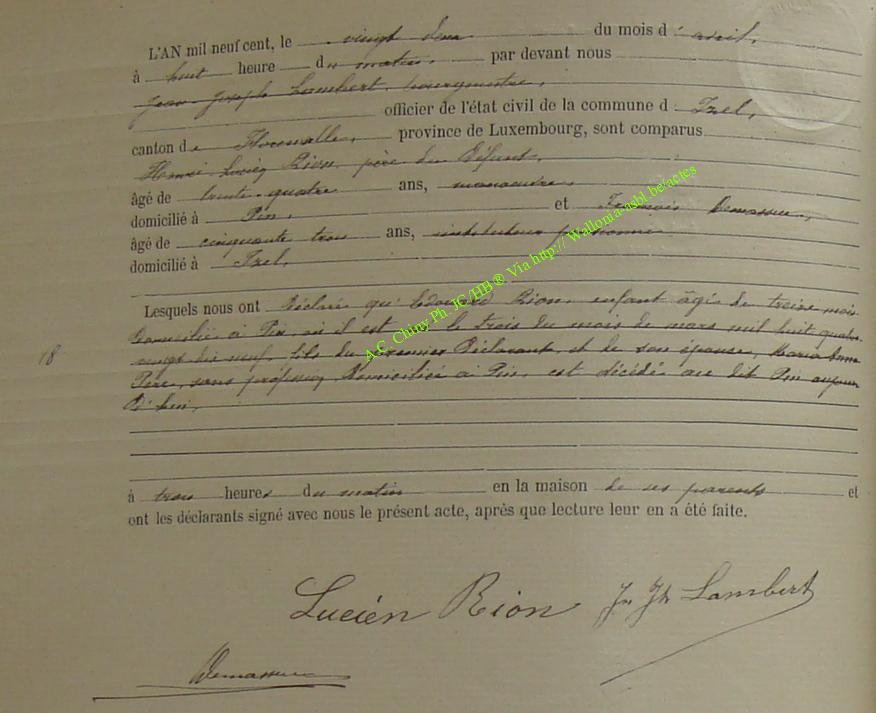 L'AN mil neuf cent, le vingt deux du mois d'avril,
à huit heure du matin, par devant nous
Jean Joseph Lambert, bourgmestre,
officier de l'état civil de la commune d Izel,
canton de Florenville, province de Luxembourg, sont comparus
Henri Lucien Rion, père du défunt,
âgé de trente-quatre ans, manœuvre,
domicilié à Pin, et François Demasure,
âgé de cinquante trois ans, instituteur pensionné
domicilié à Izel,
Lesquels nous ont déclaré qu'Edouard Rion, enfant âgé de treize mois
domicilié à Pin, où il est né le trois du mois de mars mil huit quatre
vingt dix neuf, fils du premier déclarant, et de son épouse, Maria
sans profession, domiciliée à Pin, est décédé au dit Pin aujour
d'hui,
18
à trois heures du matin en la maison de ses parents et
ont les déclarants signé avec nous le présent acte, après que lecture leur en a été faite.
Lucien Rion Jn Jh Lambert
Demasure
A.C. Chiny Ph. JC/HB ® Via http:// Wallonia-asbl.be/actes